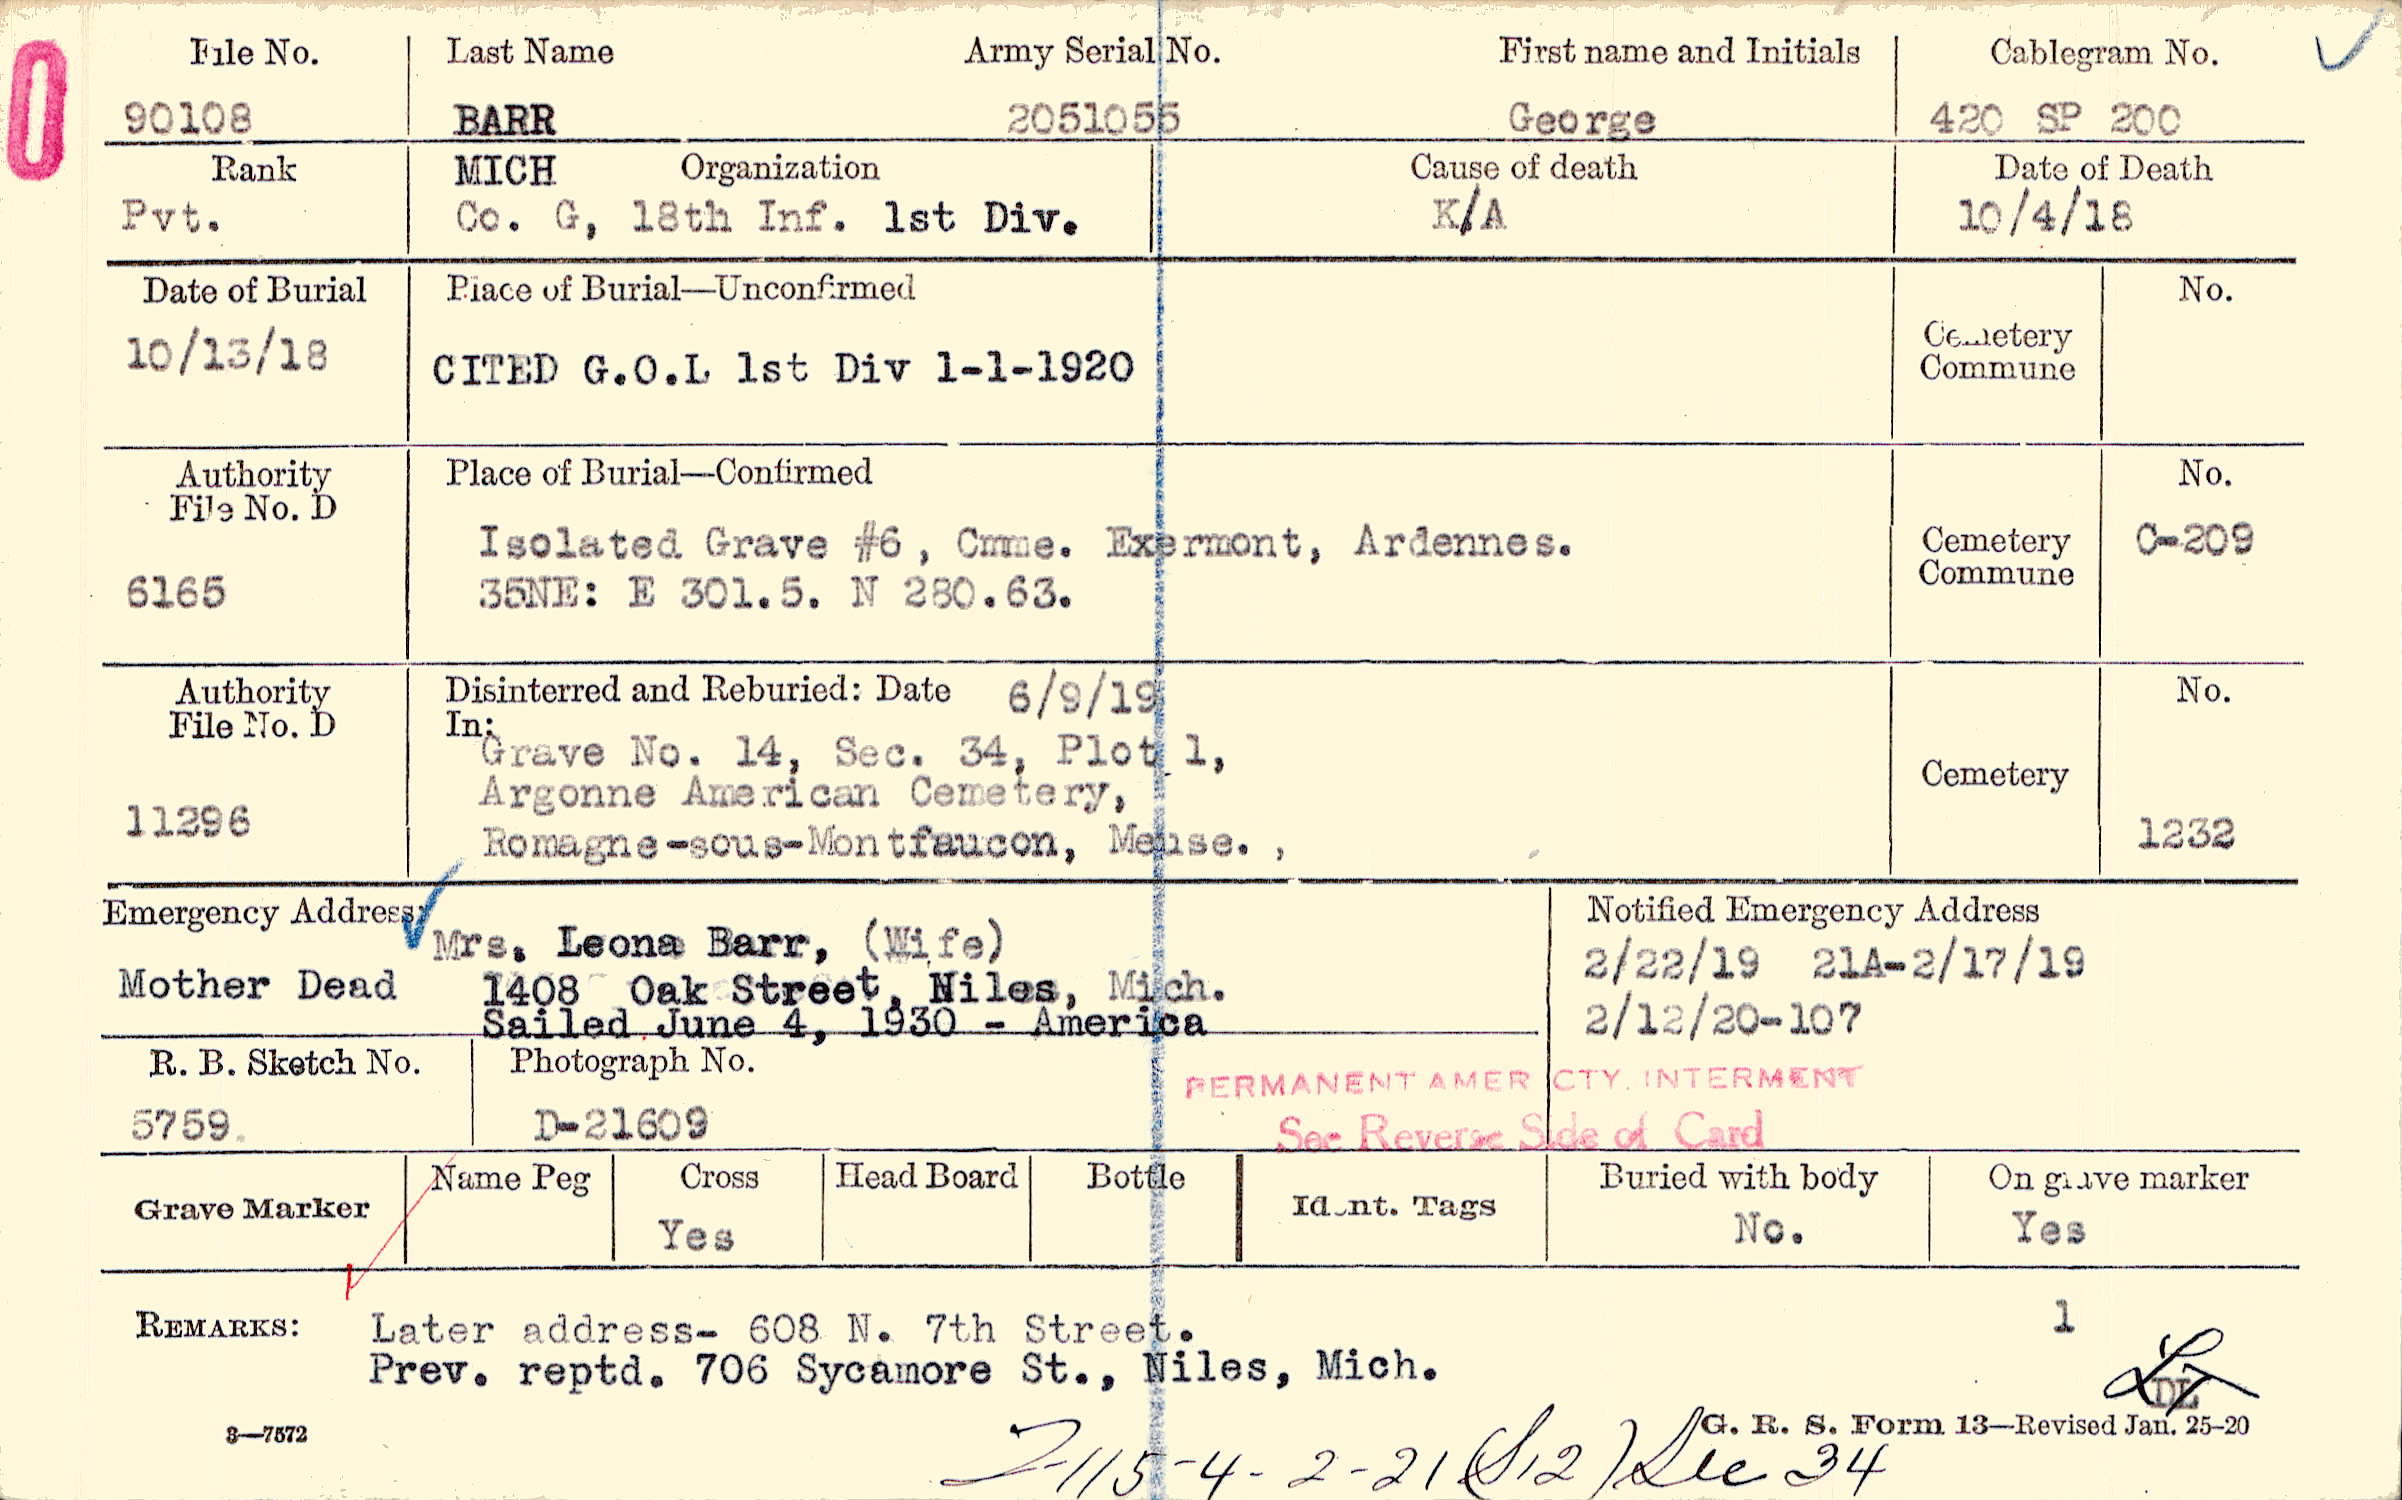 File No. Last Name Army Serial No. First name and Initials Cablegram No.
90108 BARR 2051055 George 420 SP 200
Rank MICH Organization Cause of death Date of Death
Pvt. Co. G, 18th Inf. 1st Div. K/A 10/4/18
Date of Burial Place of Burial—Unconfirmed No.
10/13/18 CITED G.O.L 1st Div 1-1-1920 Cemetery
Commune
Authority Place of Burial—Confirmed No.
File No. D
Isolated Grave #6, Cmme. Exermont, Ardennes. Cemetery C-209
6165 35NE: E 301.5. N 280.63. Commune
Authority Disinterred and Reburied: Date 6/9/19 No.
File No. D In:
Grave No. 14, Sec. 34, Plot 1,
Argonne American Cemetery, Cemetery
11296 Romagne-sous-Montfaucon, Meuse. , 1232
Emergency Address: Notified Emergency Address
Mrs. Leona Barr, (Wife) 2/22/19 21A-2/17/19
Mother Dead 1408 Oak Street, Niles, Mich.
Sailed June 4, 1930 - America 2/12/20-107
R. B. Sketch No. Photograph No. PERMANENT AMER CTY. INTERMENT
5759. D-21609 See Reverse Side of Card
Grave Marker Name Peg Cross Head Board Bottle Ident. Tags Buried with body On grave marker
Yes No. Yes
REMARKS: Later address- 608 N. 7th Street. 1
Prev. reptd. 706 Sycamore St., Niles, Mich. DL
3—7572 G. R. S. Form 13—Revised Jan. 25-20
-115-4-2-21 (S,2) Sec 34